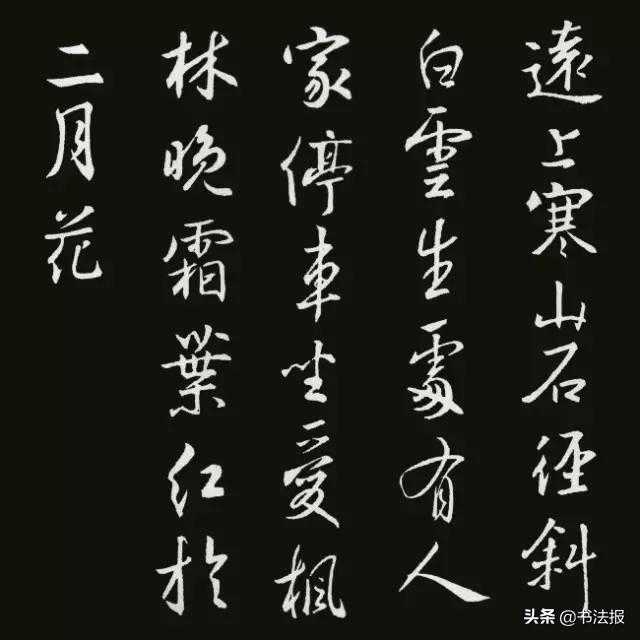 遠上寒山石徑斜
白雲生處有人
家停車坐愛楓
林晚霜葉红於
二月花
头条 @书法报